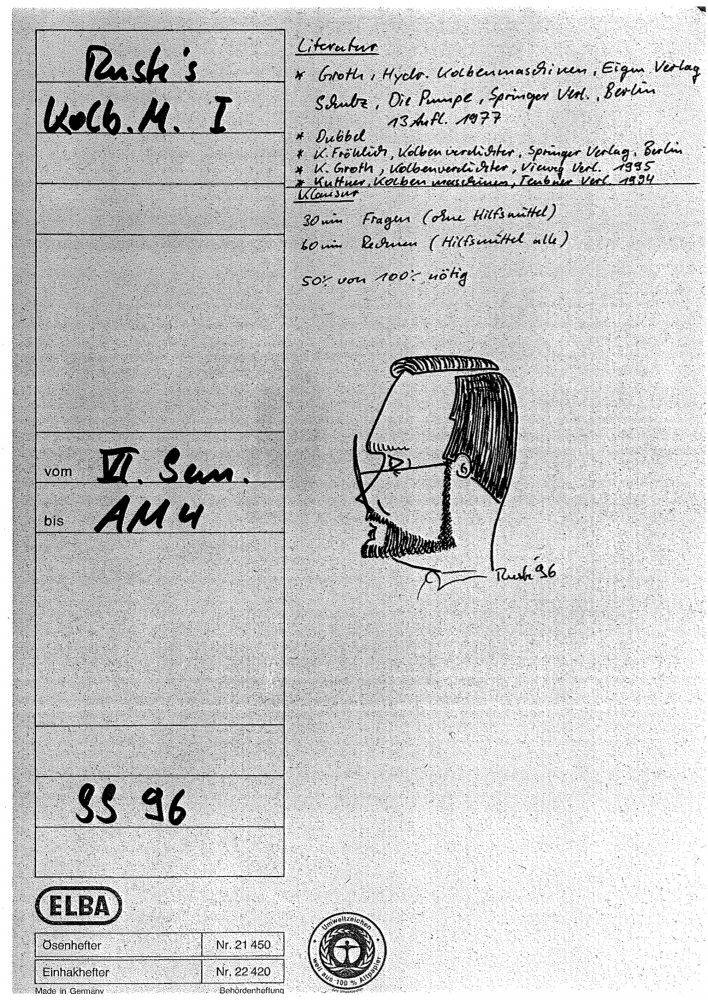 Rusti's
Kolb.M. I
vom VI. Sem.
bis AM4
SS 96
ELBA
Ösenhefter Nr. 21 450
Einhakhefter Nr. 22 420
Made in Germany Behördenheftung
Literatur
* Groth, Hydr. Kolbenmaschinen, Eigen Verlag
Schulz, Die Pumpe, Springer Verl., Berlin
13 Aufl. 1977
* Dubbel
* K. Fröhlich, Kolbenverdichter, Springer Verlag, Berlin
* K. Groth, Kolbenverdichter, Vieweg Verl. 1995
* Kuttner, Kolbenmaschinen, Teubner Verl. 1994
Klausur
30 min Fragen (ohne Hilfsmittel)
60 min Rechnen (Hilfsmittel alle)
50% von 100% nötig
Rusti '96
Umweltzeichen
weil aus 100 % Altpapier